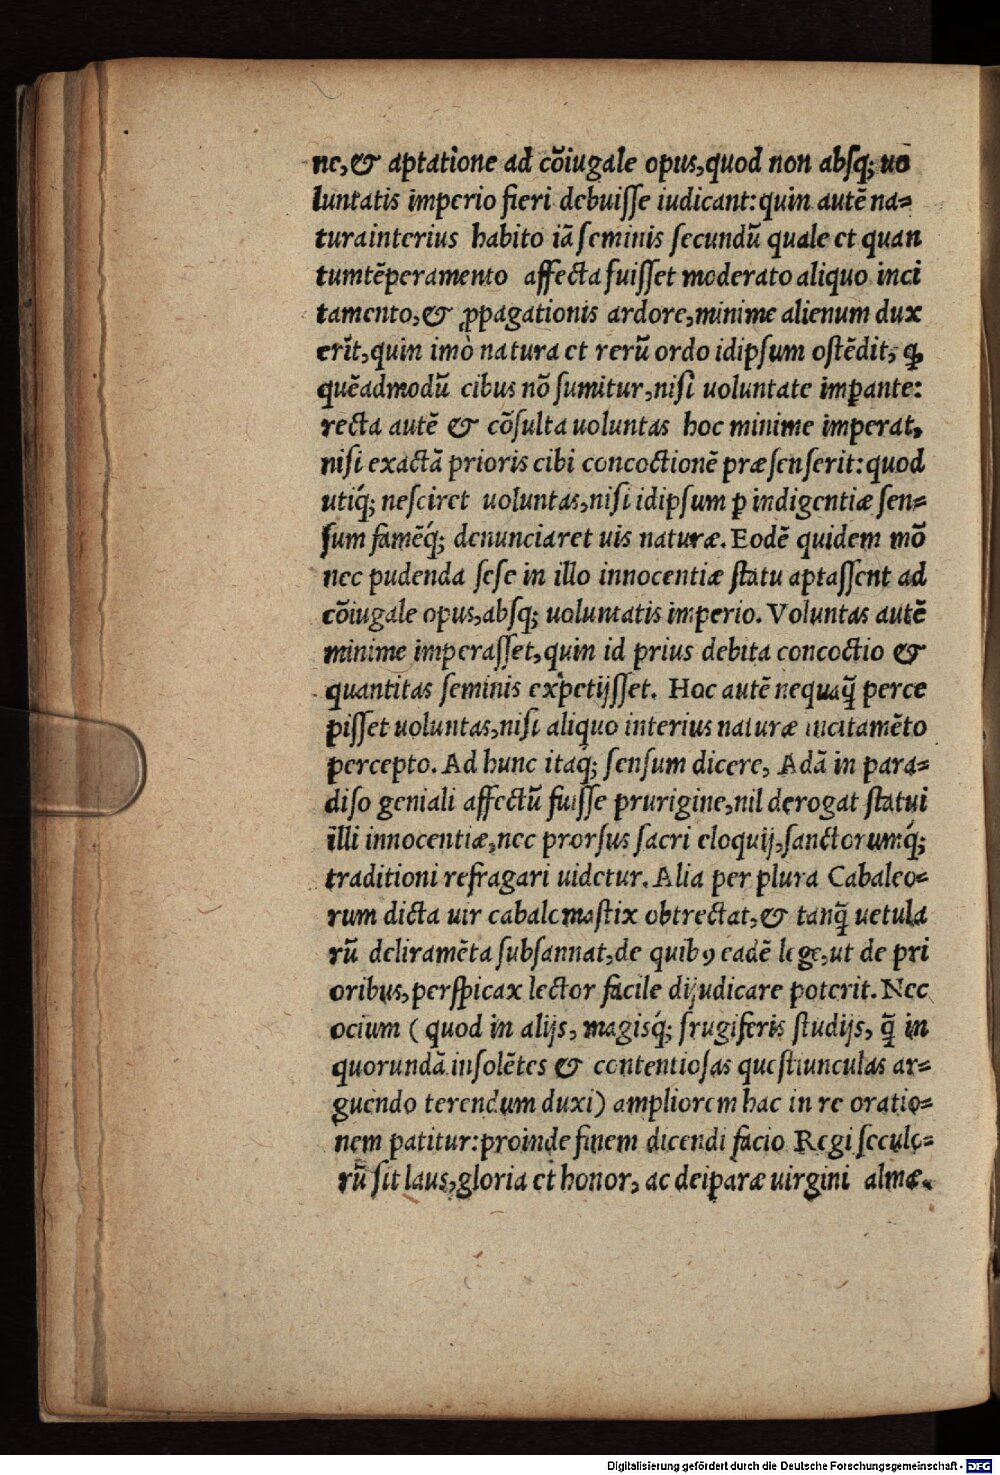 ne,& aptatione ad cõiugale opus,quod non absq; uo
luntatis imperio fieri debuisse iudicant:quin autẽ na=
turainterius habito iã seminis secundũ quale et quan
tumtẽperamento affecta fuisset moderato aliquo inci
tamento,& ꝓpagationis ardore,minime alienum dux
erĩt,quin imò natura et rerũ ordo idipsum ostẽdit, ꝙ
quẽadmodũ cibus nõ sumitur,nisi uoluntate imꝑante:
recta autẽ & cõsulta uoluntas hoc minime imperat,
nisi exactã prioris cibi concoctionẽ præsenserit:quod
utiq́; nesciret uoluntas,nisi idipsum ꝑ indigentiæ sen=
sum famẽq́; denunciaret uis naturæ. Eodẽ quidem mõ
nec pudenda sese in illo innocentiæ statu aptassent ad
cõiugale opus,absq; uoluntatis imperio. Voluntas autẽ
minime imperasset,quin id prius debita concoctio &
quantitas seminis expetijsset. Hoc autẽ nequaq̃ perce
pisset uoluntas,nisi aliquo interius naturæ incitamẽto
percepto. Ad hunc itaq; sensum dicere, Adã in para=
diso geniali affectũ fuisse prurigine,nil derogat statui
illi innocentiæ,nec prorsus sacri eloquij,sanctorumq́;
traditioni refragari uidetur. Alia per plura Cabaleo=
rum dicta uir cabalemastix obtrectat,& tanq̃ uetula
rũ deliramẽta subsannat,de quibꝰ eadẽ lege,ut de pri
oribus,perspicax lector facile dijudicare poterit. Nec
ocium ( quod in alijs, magisq́; frugiferis studijs, q̃ in
quorundã insolẽtes & contentiosas quæstiunculas ar=
guendo terendum duxi) ampliorem hac in re oratio=
nem patitur:proinde finem dicendi facio Regi seculo=
rũ sit laus,gloria et honor, ac deiparæ uirgini almæ.
Digitalisierung gefördert durch die Deutsche Forschungsgemeinschaft - DFG